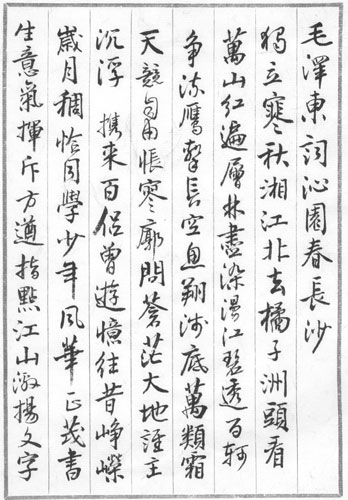 毛澤東詞沁園春長沙
獨立寒秋湘江北去橘子洲頭看
萬山紅遍層林盡染漫江碧透百舸
争流鷹擊長空魚翔浅底萬類霜
天競自由悵寥廓問蒼茫大地誰主
沉浮 攜来百侣曾遊憶往昔崢嶸
歲月稠恰同學少年風華正茂書
生意氣揮斥方遒指點江山激揚文字